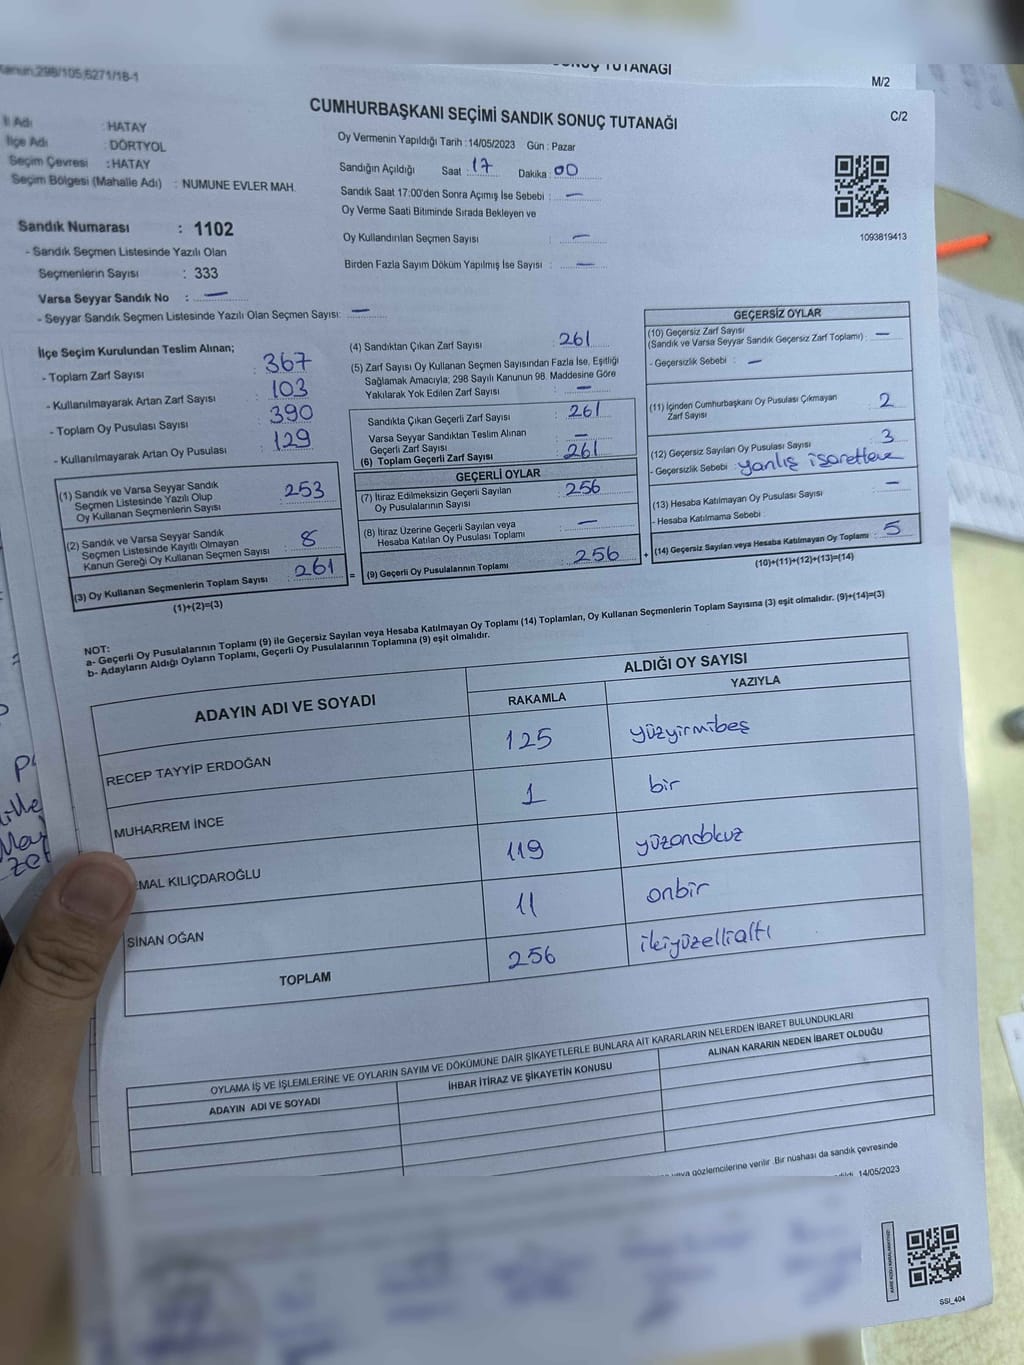 Kanun,298/105;6271/18-1
SONUÇ TUTANAĞI
M/2
CUMHURBAŞKANI SEÇİMİ SANDIK SONUÇ TUTANAĞI
C/2
İl Adı : HATAY
İlçe Adı : DÖRTYOL
Seçim Çevresi : HATAY
Seçim Bölgesi (Mahalle Adı) : NUMUNE EVLER MAH.
Oy Vermenin Yapıldığı Tarih : 14/05/2023 Gün : Pazar
Sandığın Açıldığı Saat : 17 Dakika : 00
Sandık Saat 17:00'den Sonra Açımış İse Sebebi : —
Oy Verme Saati Bitiminde Sırada Bekleyen ve
Oy Kullandırılan Seçmen Sayısı : —
Birden Fazla Sayım Döküm Yapılmış İse Sayısı : —
1093819413
Sandık Numarası : 1102
- Sandık Seçmen Listesinde Yazılı Olan
Seçmenlerin Sayısı : 333
Varsa Seyyar Sandık No : —
- Seyyar Sandık Seçmen Listesinde Yazılı Olan Seçmen Sayısı: —
İlçe Seçim Kurulundan Teslim Alınan;
- Toplam Zarf Sayısı : 367
- Kullanılmayarak Artan Zarf Sayısı : 103
- Toplam Oy Pusulası Sayısı : 390
- Kullanılmayarak Artan Oy Pusulası : 129
(1) Sandık ve Varsa Seyyar Sandık
Seçmen Listesinde Yazılı Olup
Oy Kullanan Seçmenlerin Sayısı : 253
(2) Sandık ve Varsa Seyyar Sandık
Seçmen Listesinde Kayıtlı Olmayan
Kanun Gereği Oy Kullanan Seçmen Sayısı : 8
(3) Oy Kullanan Seçmenlerin Toplam Sayısı : 261
(1)+(2)=(3)
=
(4) Sandıktan Çıkan Zarf Sayısı : 261
(5) Zarf Sayısı Oy Kullanan Seçmen Sayısından Fazla İse, Eşitliği
Sağlamak Amacıyla; 298 Sayılı Kanunun 98. Maddesine Göre
Yakılarak Yok Edilen Zarf Sayısı : —
Sandıkta Çıkan Geçerli Zarf Sayısı : 261
Varsa Seyyar Sandıktan Teslim Alınan
Geçerli Zarf Sayısı : —
(6) Toplam Geçerli Zarf Sayısı : 261
GEÇERLİ OYLAR
(7) İtiraz Edilmeksizin Geçerli Sayılan
Oy Pusulalarının Sayısı : 256
(8) İtiraz Üzerine Geçerli Sayılan veya
Hesaba Katılan Oy Pusulası Toplamı : —
(9) Geçerli Oy Pusulalarının Toplamı : 256
+
GEÇERSİZ OYLAR
(10) Geçersiz Zarf Sayısı
(Sandık ve Varsa Seyyar Sandık Geçersiz Zarf Toplamı) : —
- Geçersizlik Sebebi : —
(11) İçinden Cumhurbaşkanı Oy Pusulası Çıkmayan
Zarf Sayısı : 2
(12) Geçersiz Sayılan Oy Pusulası Sayısı : 3
- Geçersizlik Sebebi : yanlış işaretleme
(13) Hesaba Katılmayan Oy Pusulası Sayısı : —
- Hesaba Katılmama Sebebi :
(14) Geçersiz Sayılan veya Hesaba Katılmayan Oy Toplamı : 5
(10)+(11)+(12)+(13)=(14)
NOT:
a- Geçerli Oy Pusulalarının Toplamı (9) ile Geçersiz Sayılan veya Hesaba Katılmayan Oy Toplamı (14) Toplamları, Oy Kullanan Seçmenlerin Toplam Sayısına (3) eşit olmalıdır. (9)+(14)=(3)
b- Adayların Aldığı Oyların Toplamı, Geçerli Oy Pusulalarının Toplamına (9) eşit olmalıdır.
ADAYIN ADI VE SOYADI
ALDIĞI OY SAYISI
RAKAMLA YAZIYLA
RECEP TAYYİP ERDOĞAN 125 yüzyirmibeş
MUHARREM İNCE 1 bir
EMAL KILIÇDAROĞLU 119 yüzondokuz
SİNAN OĞAN 11 onbir
TOPLAM 256 ikiyüzellialtı
OYLAMA İŞ VE İŞLEMLERİNE VE OYLARIN SAYIM VE DÖKÜMÜNE DAİR ŞİKAYETLERLE BUNLARA AİT KARARLARIN NELERDEN İBARET BULUNDUKLARI
ADAYIN ADI VE SOYADI İHBAR İTİRAZ VE ŞİKAYETİN KONUSU ALINAN KARARIN NEDEN İBARET OLDUĞU
veya gözlemcilerine verilir .Bir nüshası da sandık çevresinde
14/05/2023
SSI_404